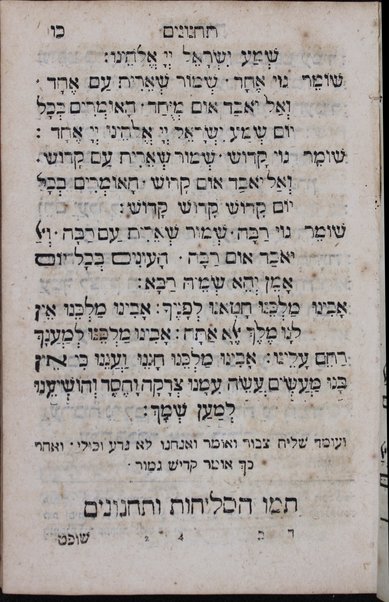 תחנונים כו
שְׁמַע יִשְׂרָאֵל יְיָ אֱלֹהֵינוּ:
שׁוֹמֵר גּוֹי אֶחָד · שְׁמוֹר שְׁאֵרִית עַם אֶחָד ·
וְאַל יֹאבַד אוֹם מְיֻחָד · הָאוֹמְרִים בְּכָל
יוֹם שְׁמַע יִשְׂרָאֵל יְיָ אֱלֹהֵינוּ יְיָ אֶחָד :
שׁוֹמֵר גּוֹי קָדוֹשׁ · שְׁמוֹר שְׁאֵרִית עַם קָדוֹשׁ ·
וְאַל יֹאבַד אוֹם קָדוֹשׁ · הָאוֹמְרִים בְּכָל
יוֹם קָדוֹשׁ קָדוֹשׁ קָדוֹשׁ :
שׁוֹמֵר גּוֹי רַבָּה · שְׁמוֹר שְׁאֵרִית עַם רַבָּה · וְאַל
יֹאבַד אוֹם רַבָּה · הָעוֹנִים בְּכָל יוֹם
אָמֵן יְהֵא שְׁמֵיהּ רַבָּא :
אָבִינוּ מַלְכֵּנוּ חָטָאנוּ לְפָנֶיךָ : אָבִינוּ מַלְכֵּנוּ אֵין
לָנוּ מֶלֶךְ אֶלָּא אָתָּה : אָבִינוּ מַלְכֵּנוּ לְמַעֲנָךְ
רַחֵם עָלֵינוּ : אָבִינוּ מַלְכֵּנוּ חָנֵּנוּ וַעֲנֵנוּ כִּי אֵין
בָּנוּ מַעֲשִׂים עֲשֵׂה עִמָּנוּ צְדָקָה וָחֶסֶד וְהוֹשִׁיעֵנוּ
לְמַעַן שְׁמֶךָ :
ועומד שליח צבור ואומר ואנחנו לא נדע וכולי · ואחר
כך אומר קדיש גמור ·
תמו הסליחות ותחנונים
ד ב 4 2 שופט